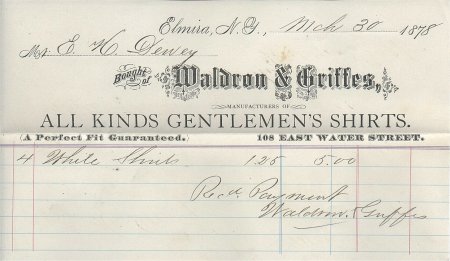 Elmira, N.Y., Mch 30 1878
Mr. E. H. Dewey
Bought of Waldron & Griffes,
MANUFACTURERS OF
ALL KINDS GENTLEMEN'S SHIRTS.
(A Perfect Fit Guaranteed.) 108 EAST WATER STREET.
4 White Shirts 1.25 5.00
Recd. Payment
Waldron & Griffes